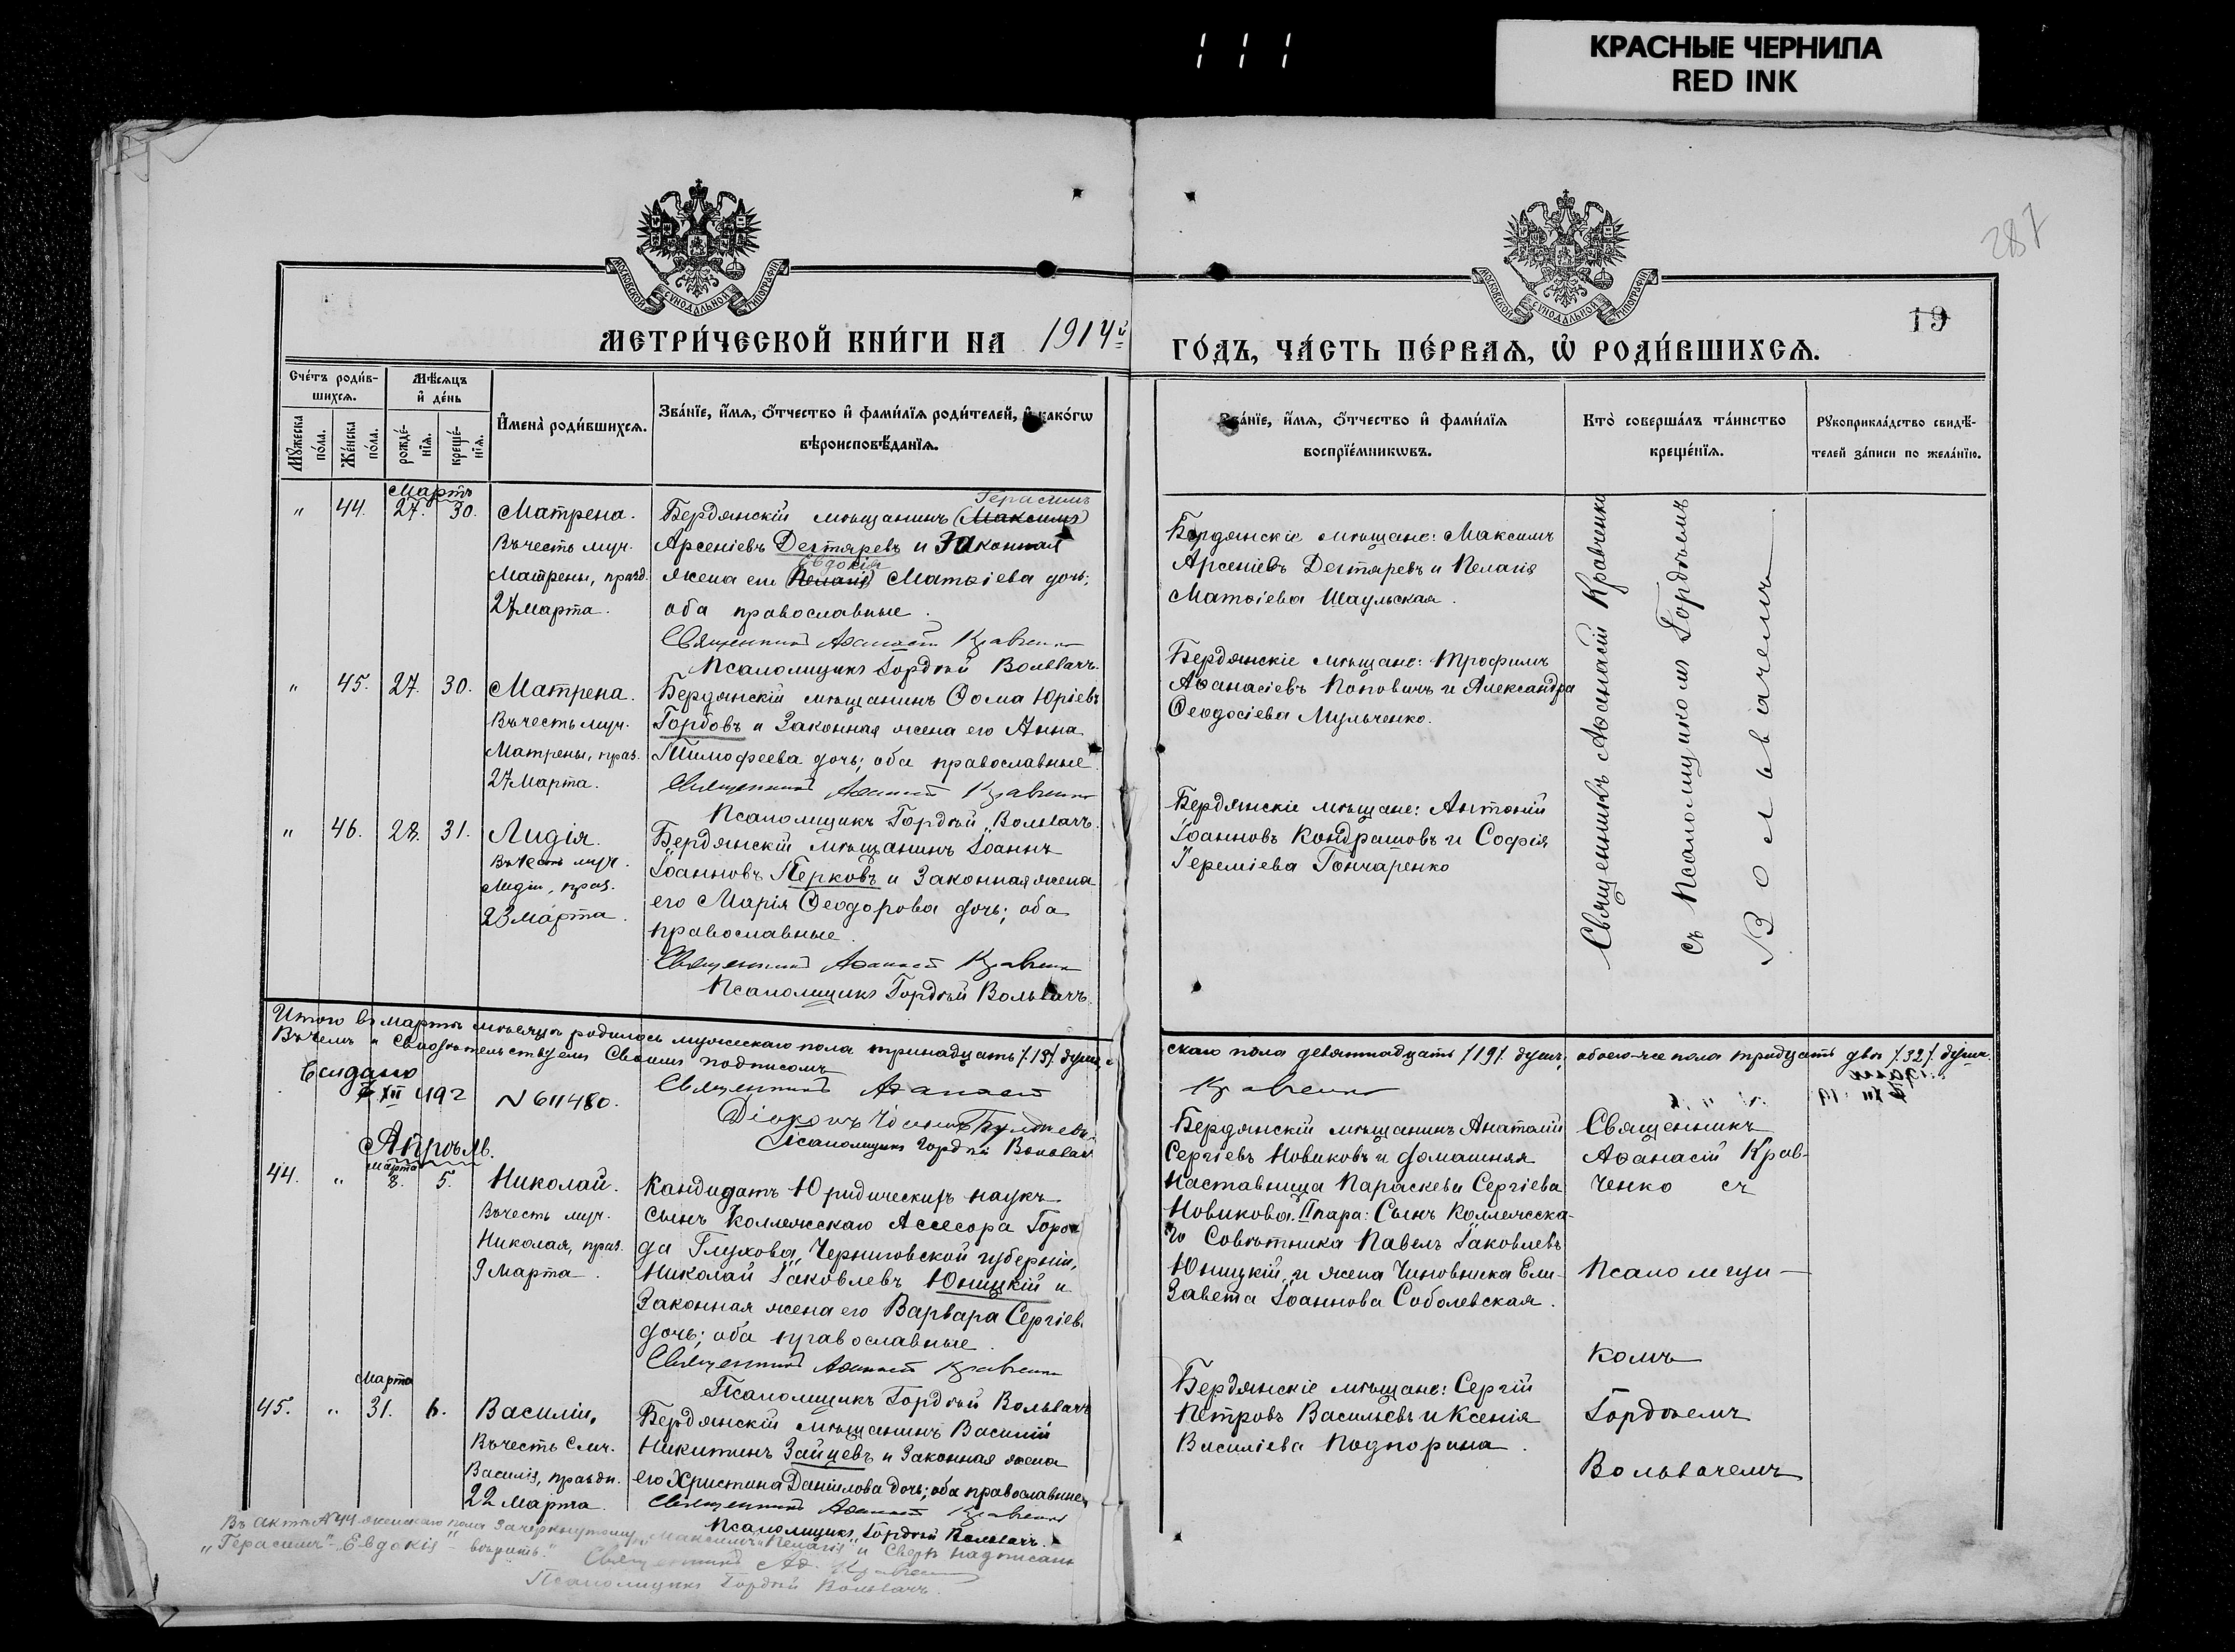 КРАСНЫЕ ЧЕРНИЛА
RED INK
287
19
МОСКОВСКОЙ СУНОДАЛЬНОЙ ТИПОГРАФІИ
МОСКОВСКОЙ СУНОДАЛЬНОЙ ТИПОГРАФІИ
МЕТРИ́ЧЕСКОЙ КНИ́ГИ НА 1914й
ГО́ДЪ, ЧА́СТЬ ПЕ́РВАѦ, Ѡ҆ РОДИ́ВШИХСѦ.
Сче́тъ роди́в-
шихсѧ.
Мѣ́сѧцъ
и҆ де́нь
Мꙋ́жеска по́ла.
Же́нска по́ла.
рожде́-нїѧ.
креще́-нїѧ.
И҆мена̀ роди́вшихсѧ.
Зва́нїе, и҆́мѧ, о҆́тчество и҆ фами́лїѧ роди́телей, и҆ како́гѡ
вѣроисповѣ́данїѧ.
Зва́нїе, и҆́мѧ, о҆́тчество и҆ фами́лїѧ
воспрїе́мникѡвъ.
Кто̀ соверша́лъ та́инство
креще́нїѧ.
Рꙋкоприкла́дство свидѣ́-
телей за́писи по жела́нїю.
Мартъ
" 44. 27. 30. Матрена.
Въ честь муч.
Матрены, празд.
27 Марта.
Герасимъ
Бердянскій мѣщанинъ (Максимъ)
Арсеніевъ Дегтяревъ и Законная
Евдокія
жена его (Пелагія) Матѳіева дочь;
оба православные.
Священникъ Аѳанасій Кравченко
Псаломщикъ Гордѣй Вольвачъ.
Бердянскіе мѣщане: Максимъ
Арсеніевъ Дегтяревъ и Пелагія
Матѳіева Шаульская.
Священникъ Аѳанасій Кравченко
съ Псаломщикомъ Гордѣемъ
Вольвачемъ
" 45. 27. 30. Матрена.
Въ честь муч.
Матрены, праз.
27 Марта.
Бердянскій мѣщанинъ Ѳома Юріевъ
Горбовъ и Законная жена его Анна
Тимофеева дочь; оба православные.
Священникъ Аѳанасій Кравченко
Псаломщикъ Гордѣй Вольвачъ.
Бердянскіе мѣщане: Трофимъ
Аѳанасіевъ Поповичъ и Александра
Ѳеодосіева Мульченко.
" 46. 28. 31. Лидія.
Въ честь муч.
Лидіи, праз.
23 Марта.
Бердянскій мѣщанинъ Іоаннъ
Іоанновъ Перковъ и Законная жена
его Марія Ѳеодорова дочь; оба
православные.
Священникъ Аѳанасій Кравченко
Псаломщикъ Гордѣй Вольвачъ.
Бердянскіе мѣщане: Антоній
Іоанновъ Кондрашовъ и Софія
Іереміева Гончаренко
Итого въ мартѣ мѣсяцѣ родилось мужескаго пола тринадцать /.13/. душъ, жен-
скаго пола девятнадцать /19/. душъ; обоего-же пола тридцать двѣ /.32/. души.
Въ чемъ и Свидѣтельствуемъ Своимъ подписомъ
Священникъ Аѳанасій
Кравченко
N 611480.
Псаломщикъ Гордѣй Вольвачъ
Апрѣль.
Марта
44. " 8. 5. Николай.
Въ честь муч.
Николая, праз.
9 Марта.
Кандидатъ Юридическихъ наукъ
сынъ Коллежскаго Ассесора Горо
да Глухова, Черниговской губерніи,
Николай Іаковлевъ Юницкій и
Законная жена его Варвара Сергіев.
дочь; оба православные.
Священникъ Аѳанасій Кравченко
Псаломщикъ Гордѣй Вольвачъ
Бердянскій мѣщанинъ Анатолій
Сергіевъ Новиковъ и домашняя
Наставница Параскева Сергіева
Новикова. II пара: Сынъ Коллежска-
го Совѣтника Павелъ Іаковлевъ
Юницкій, и жена Чиновника Ели-
завета Іоаннова Соболевская.
Священникъ
Аѳанасій Крав-
ченко съ
Псаломщи-
комъ
Гордѣемъ
Вольвачемъ
Марта
45. " 31. 6. Василій,
Въ честь Смч.
Василія, праздн.
22 Марта.
Бердянскій мѣщанинъ Василій
Никитинъ Зайцевъ и Законная жена
его Христина Даніилова дочь; оба православные
Священникъ Аѳанасій Кравченко
Псаломщикъ Гордѣй Вольвачъ.
Бердянскіе мѣщане: Сергій
Петровъ Васильевъ и Ксенія
Василіева Подпорина.
Въ актѣ N44 женскаго пола Зачеркнутому "Максимъ" "Пелагія" и Сверхъ надписанн
"Герасимъ" - "Евдокія" - вѣрить.
Священникъ Аѳ. Кравченко
Псаломщикъ Гордѣй Вольвачъ.